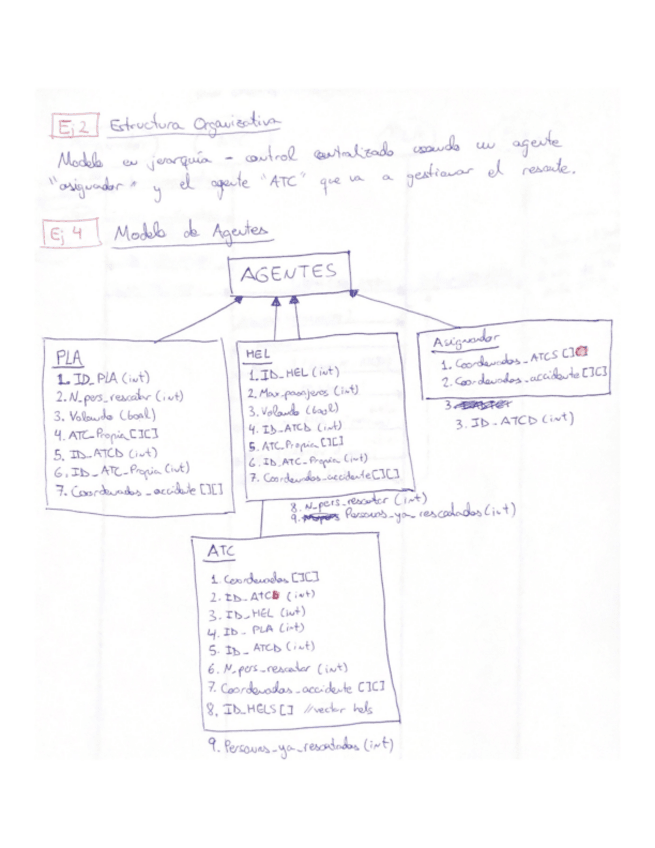 Ej 2 Estructura Organizativa
Modelo en jerarquía - control centralizado usando un agente
"asignador" y el agente "ATC" que va a gestionar el rescate.
Ej 4 Modelo de Agentes
AGENTES
PLA
1. ID_PLA (int)
2. N_pers_rescatar (int)
3. Volando (bool)
4. ATC_Propia [][]
5. ID_ATCD (int)
6. ID_ATC_Propia (int)
7. Coordenadas_accidente [][]
HEL
1. ID_HEL (int)
2. Max_pasajeros (int)
3. Volando (bool)
4. ID_ATCD (int)
5. ATC_Propia [][]
6. ID_ATC_Propia (int)
7. Coordenadas_accidente [][]
8. N_pers_rescatar (int)
9. Personas_ya_rescatadas (int)
Asignador
1. Coordenadas_ATCS []
2. Coordenadas_accidente [][]
3.
3. ID_ATCD (int)
ATC
1. Coordenadas [][]
2. ID_ATC (int)
3. ID_HEL (int)
4. ID_PLA (int)
5. ID_ATCD (int)
6. N_pers_rescatar (int)
7. Coordenadas_accidente [][]
8. ID_HELS [] //vector hels
9. Personas_ya_rescatadas (int)